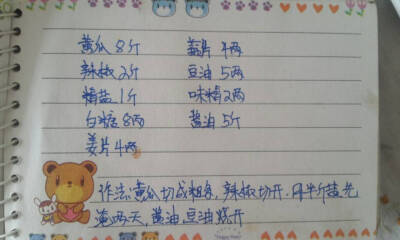 黄瓜 8斤 片 4两
辣椒 2斤 豆油 5两
精盐 1斤 味精 2两
白糖 8两 酱油 5斤
姜片 4两
作法:黄瓜切成粗条,辣椒切开.用半斤盐先
淹两天,酱油豆油烧开